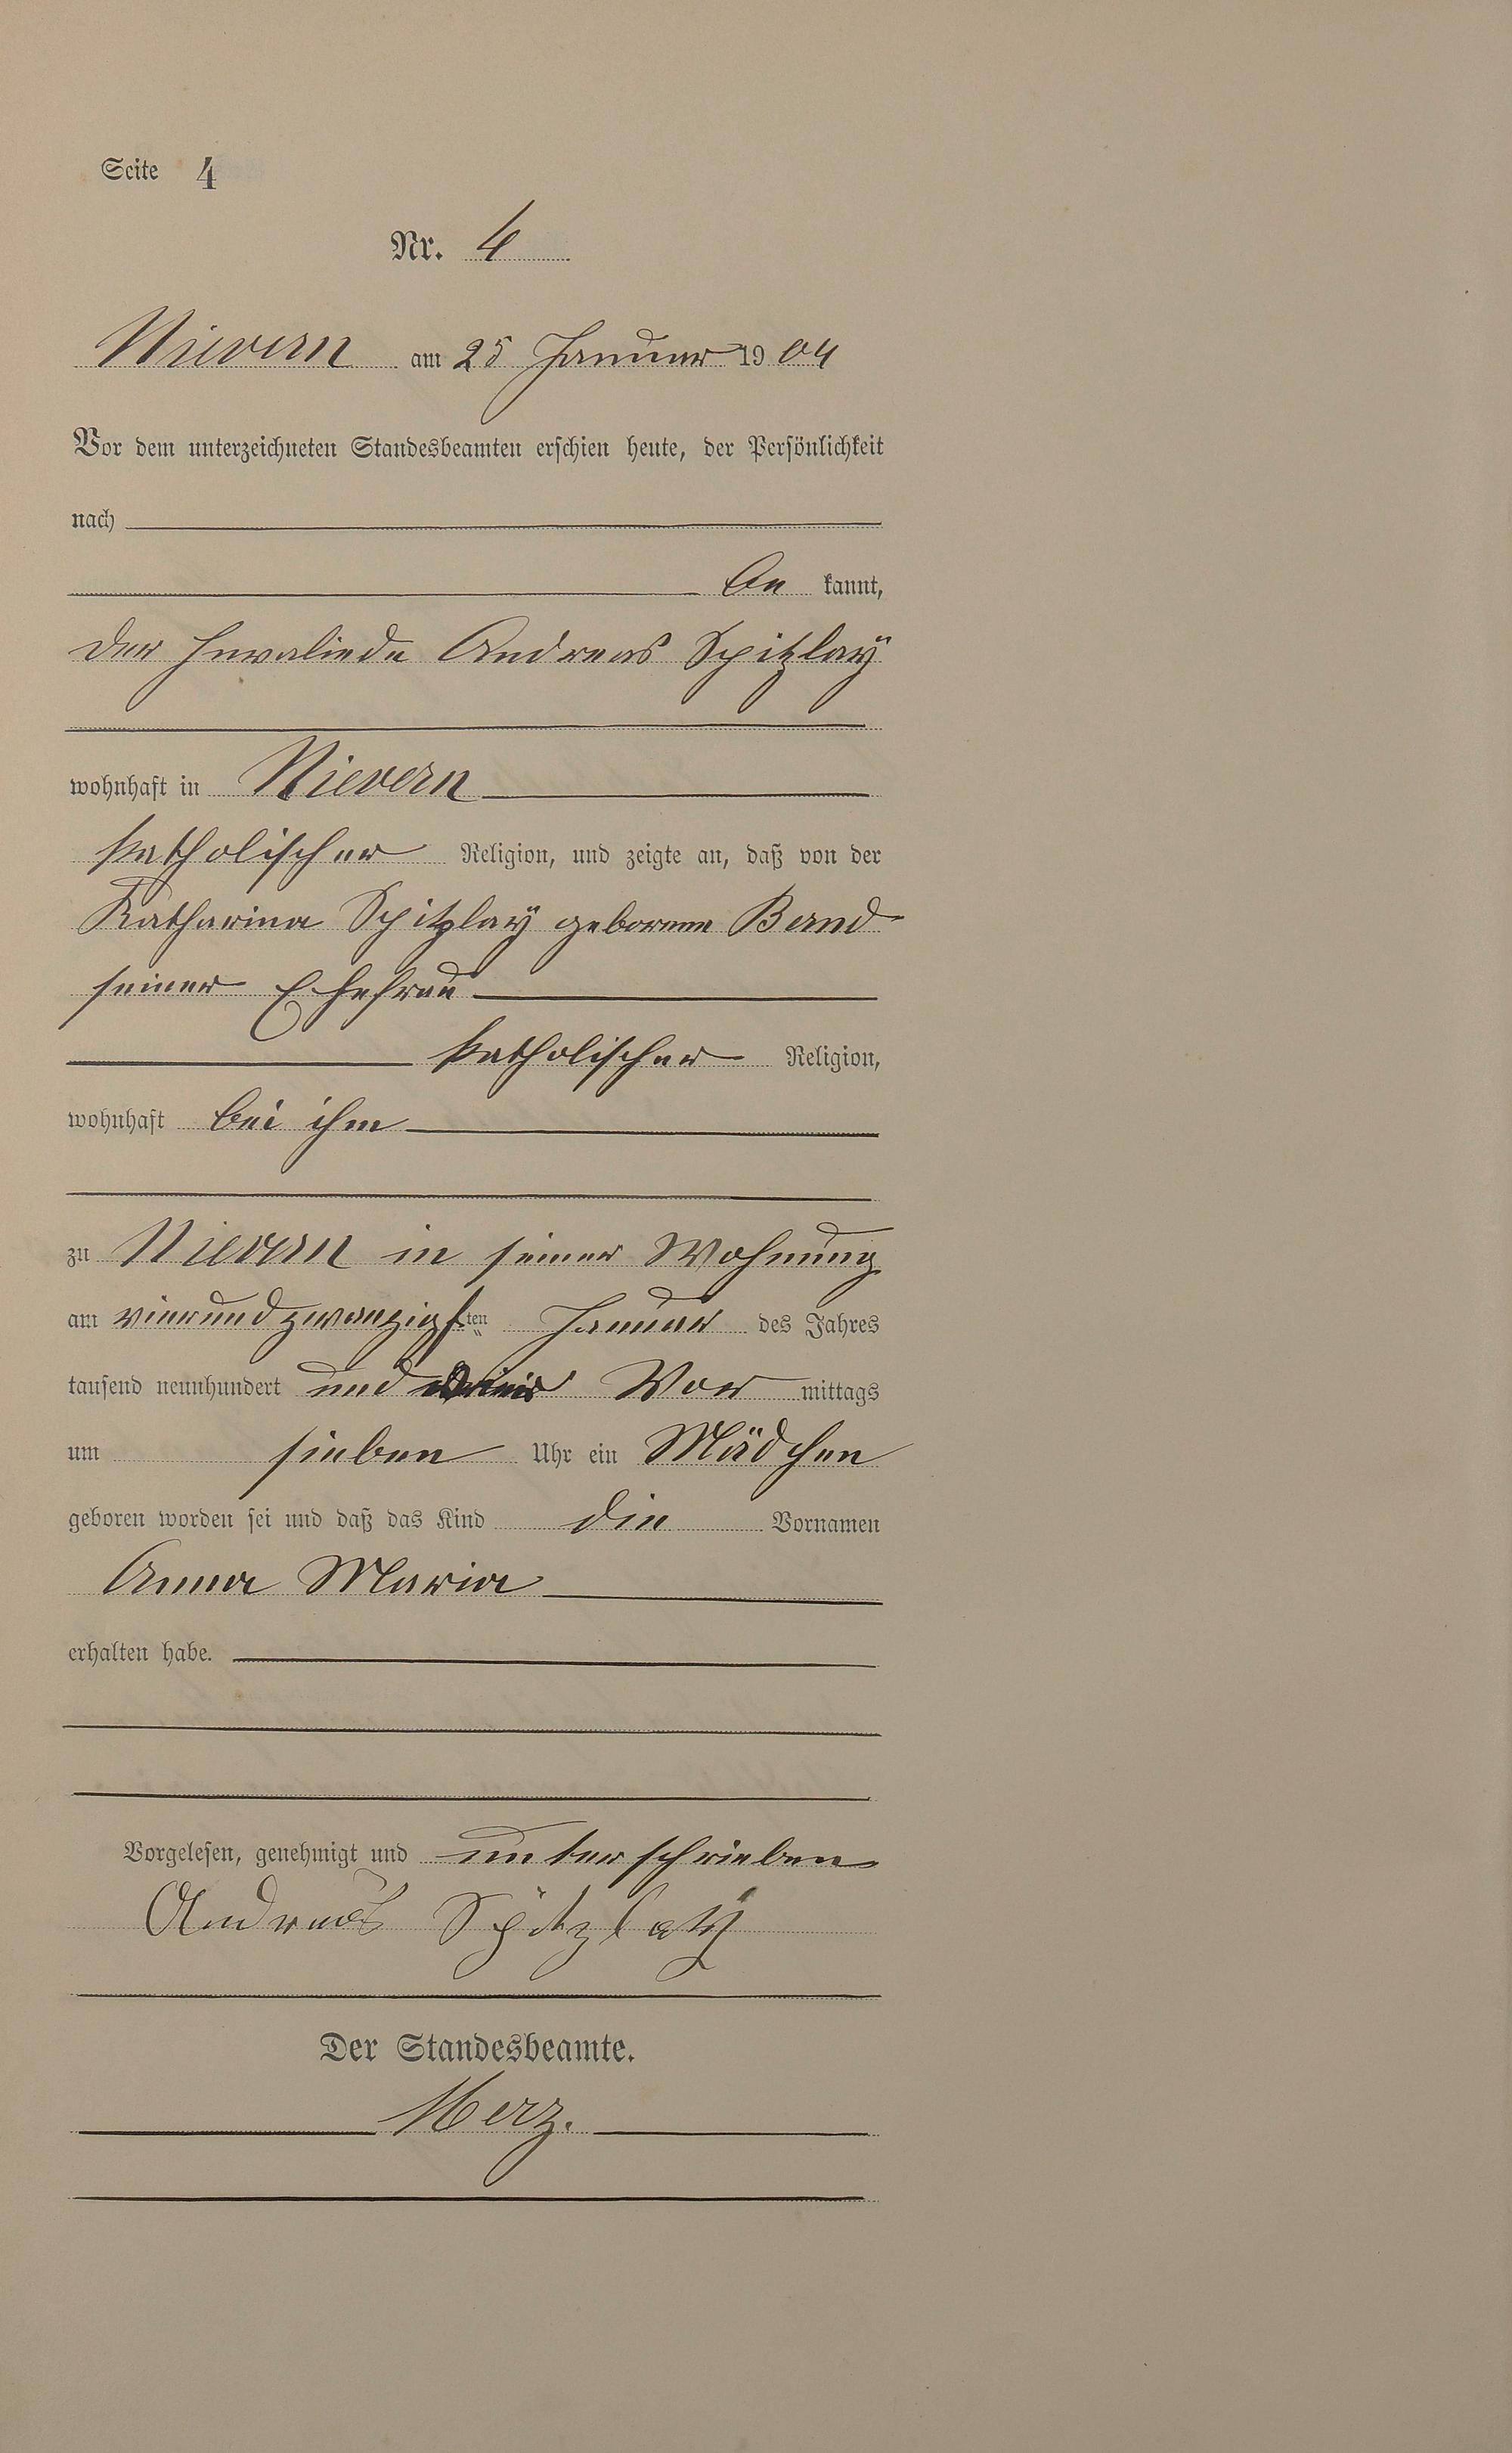 Seite 4
Nr. 4
Nievern am 25 Januar 1904
Vor dem unterzeichneten Standesbeamten erschien heute, der Persönlichkeit
nach
be kannt,
der Invaliede Andreas Spitzlay
wohnhaft in Nievern
katholischer Religion, und zeigte an, daß von der
Katharina Spitzlay geborene Band
seiner Ehefrau
katholischer Religion,
wohnhaft bei ihm
zu Nievern in seiner Wohnung
am vierundzwanzigsten Januar des Jahres
tausend neunhundert und Vor mittags
um sieben Uhr ein Mädchen
geboren worden sei und daß das Kind die Vornamen
Anna Maria
erhalten habe.
Vorgelesen, genehmigt und unterschrieben
Andreas Spitzlay
Der Standesbeamte.
Merz.